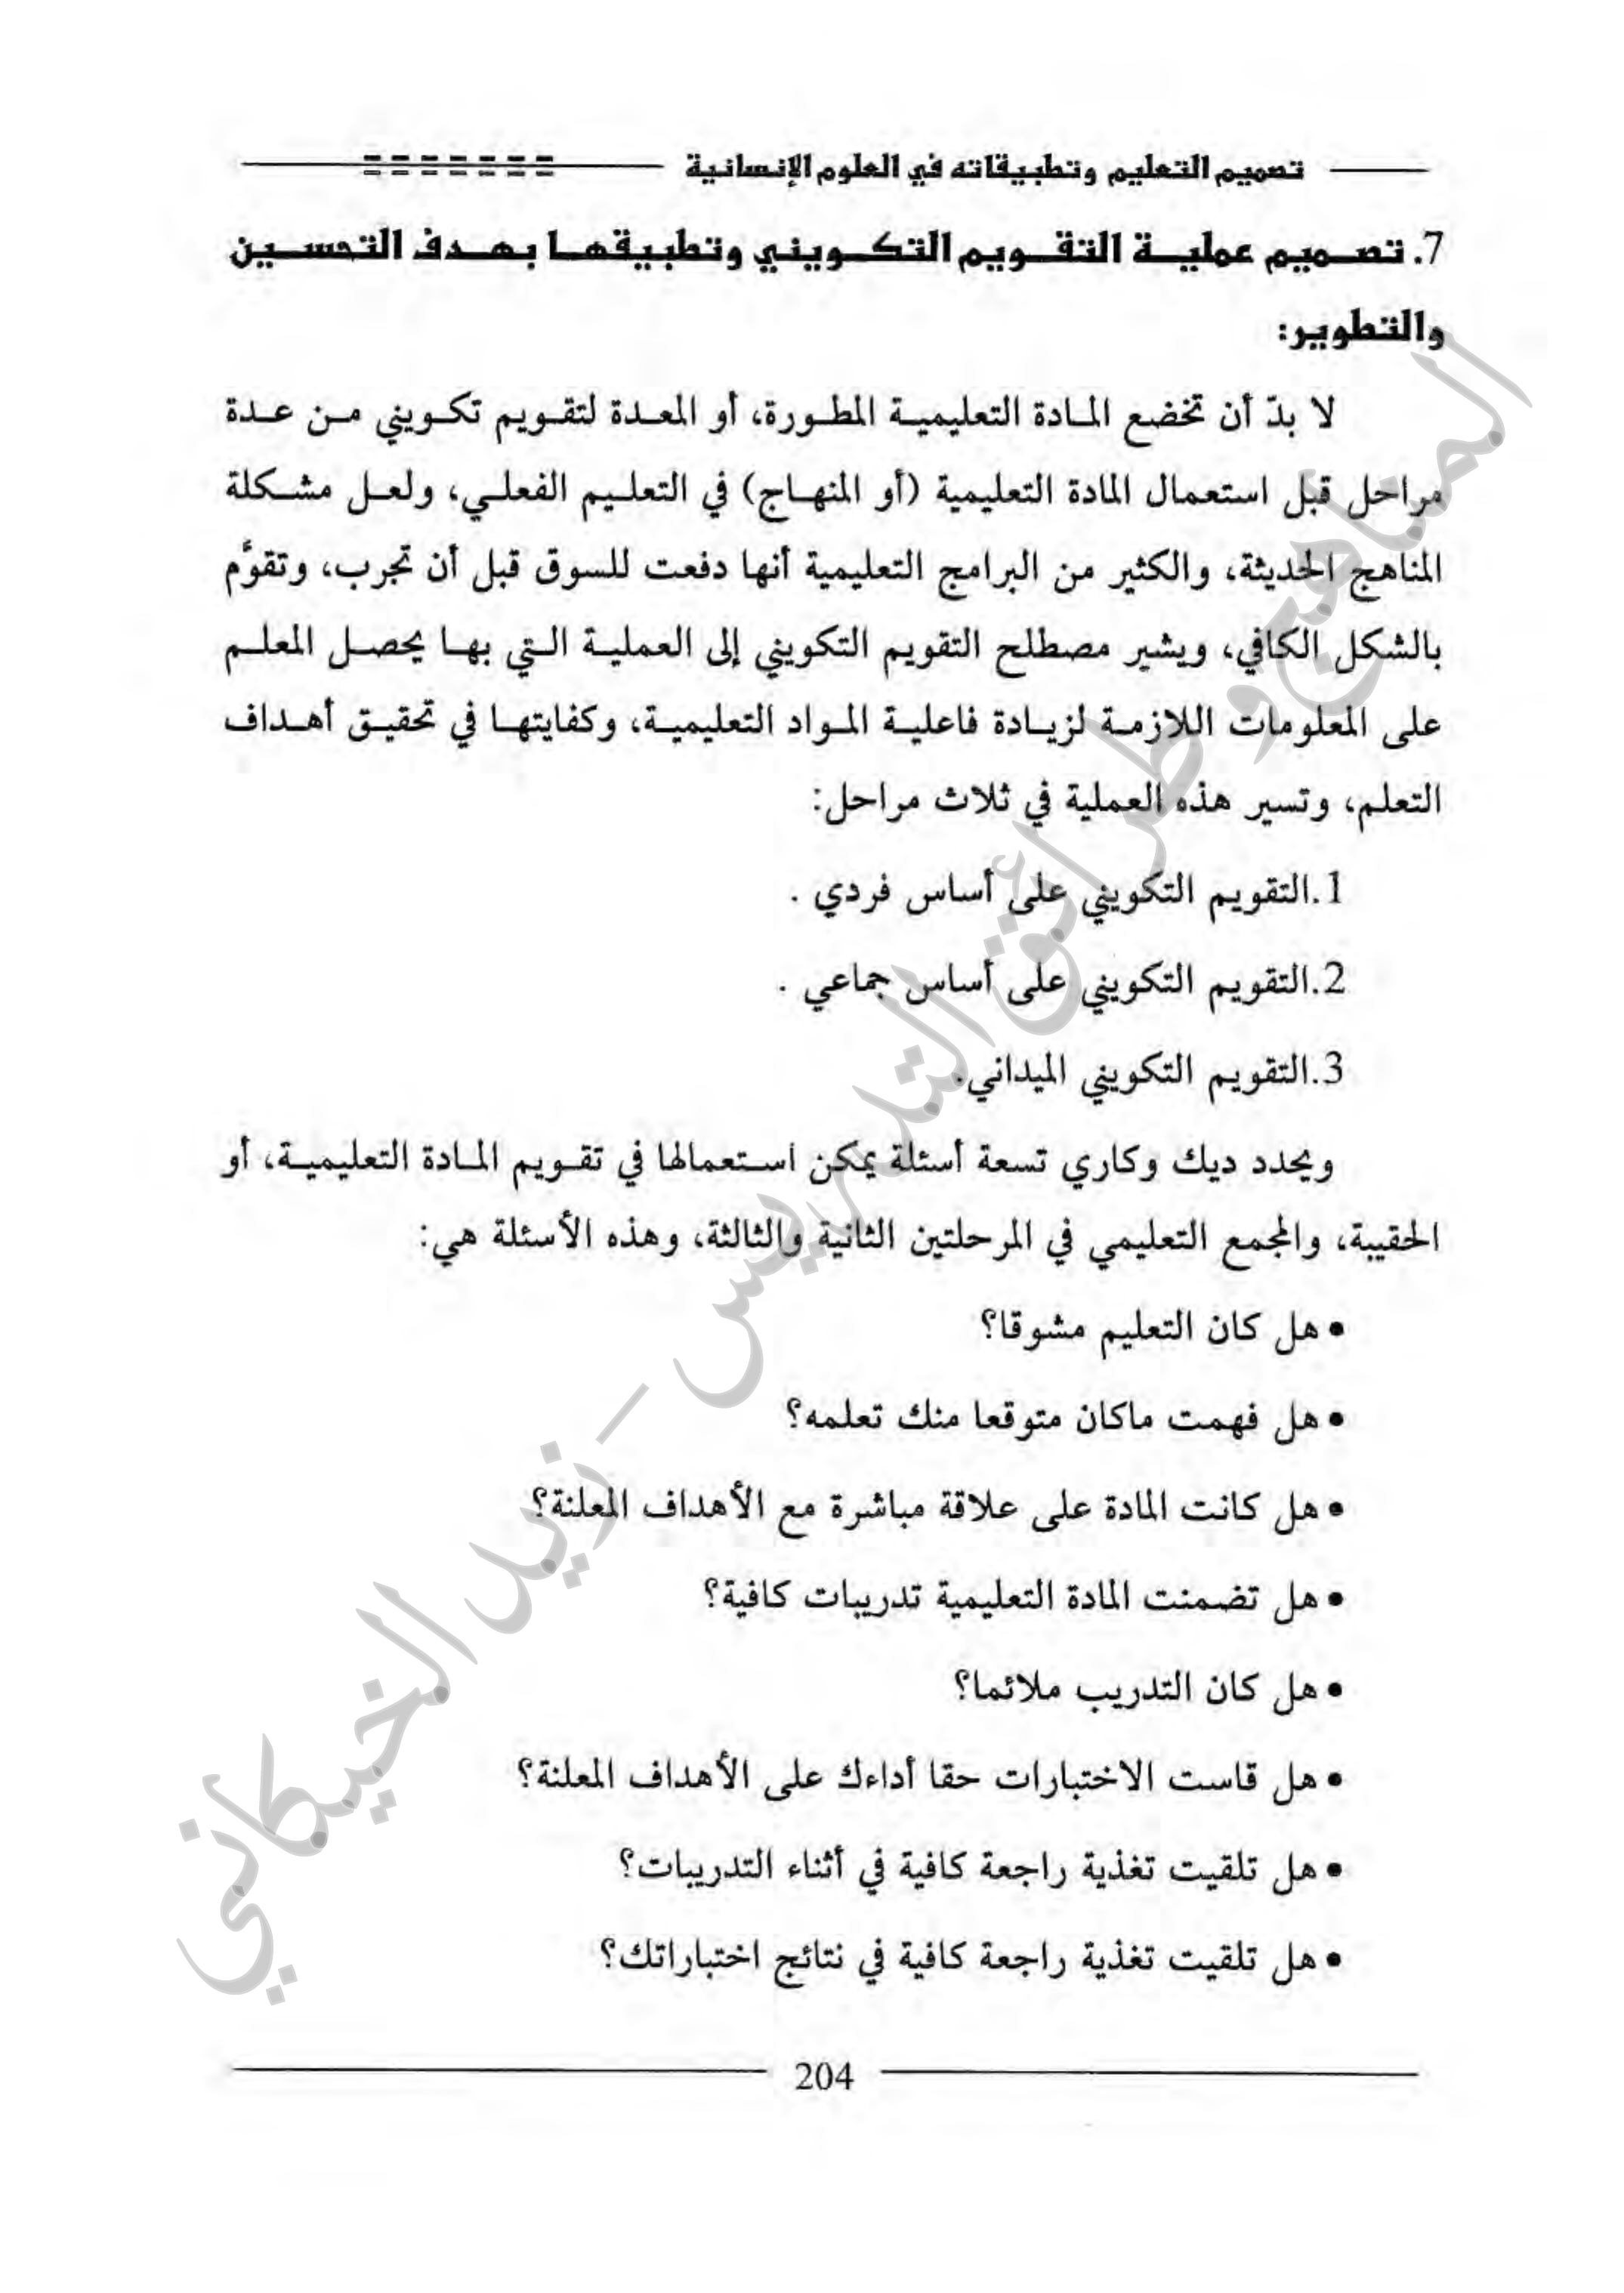 تصميم التعليم وتطبيقاته في العلوم الإنسانية
7. تصميم عملية التقويم التكويني وتطبيقها بهدف التحسين
والتطوير:
لا بدّ أن تخضع المادة التعليمية المطورة، أو المعدة لتقويم تكويني من عدة
مراحل قبل استعمال المادة التعليمية (أو المنهاج) في التعليم الفعلي، ولعل مشكلة
المناهج الحديثة، والكثير من البرامج التعليمية أنها دفعت للسوق قبل أن تجرب، وتقوَّم
بالشكل الكافي، ويشير مصطلح التقويم التكويني إلى العملية التي بها يحصل المعلم
على المعلومات اللازمة لزيادة فاعلية المواد التعليمية، وكفايتها في تحقيق أهداف
التعلم، وتسير هذه العملية في ثلاث مراحل:
1.التقويم التكويني على أساس فردي .
2.التقويم التكويني على أساس جماعي .
3.التقويم التكويني الميداني.
ويحدد ديك وكاري تسعة أسئلة يمكن استعمالها في تقويم المادة التعليمية، أو
الحقيبة، والمجمع التعليمي في المرحلتين الثانية والثالثة، وهذه الأسئلة هي:
• هل كان التعليم مشوقا؟
• هل فهمت ماكان متوقعا منك تعلمه؟
• هل كانت المادة على علاقة مباشرة مع الأهداف المعلنة؟
• هل تضمنت المادة التعليمية تدريبات كافية؟
• هل كان التدريب ملائما؟
• هل قاست الاختبارات حقا أداءك على الأهداف المعلنة؟
• هل تلقيت تغذية راجعة كافية في أثناء التدريبات؟
• هل تلقيت تغذية راجعة كافية في نتائج اختباراتك؟
204
المناهج وطرائق التدريس - زيد الخيكاني